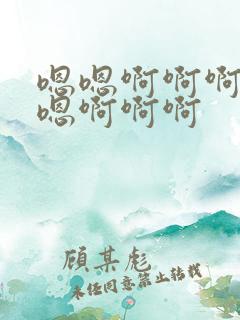 嗯嗯啊啊啊
嗯啊啊啊
顾某彪
未经同意禁止转载